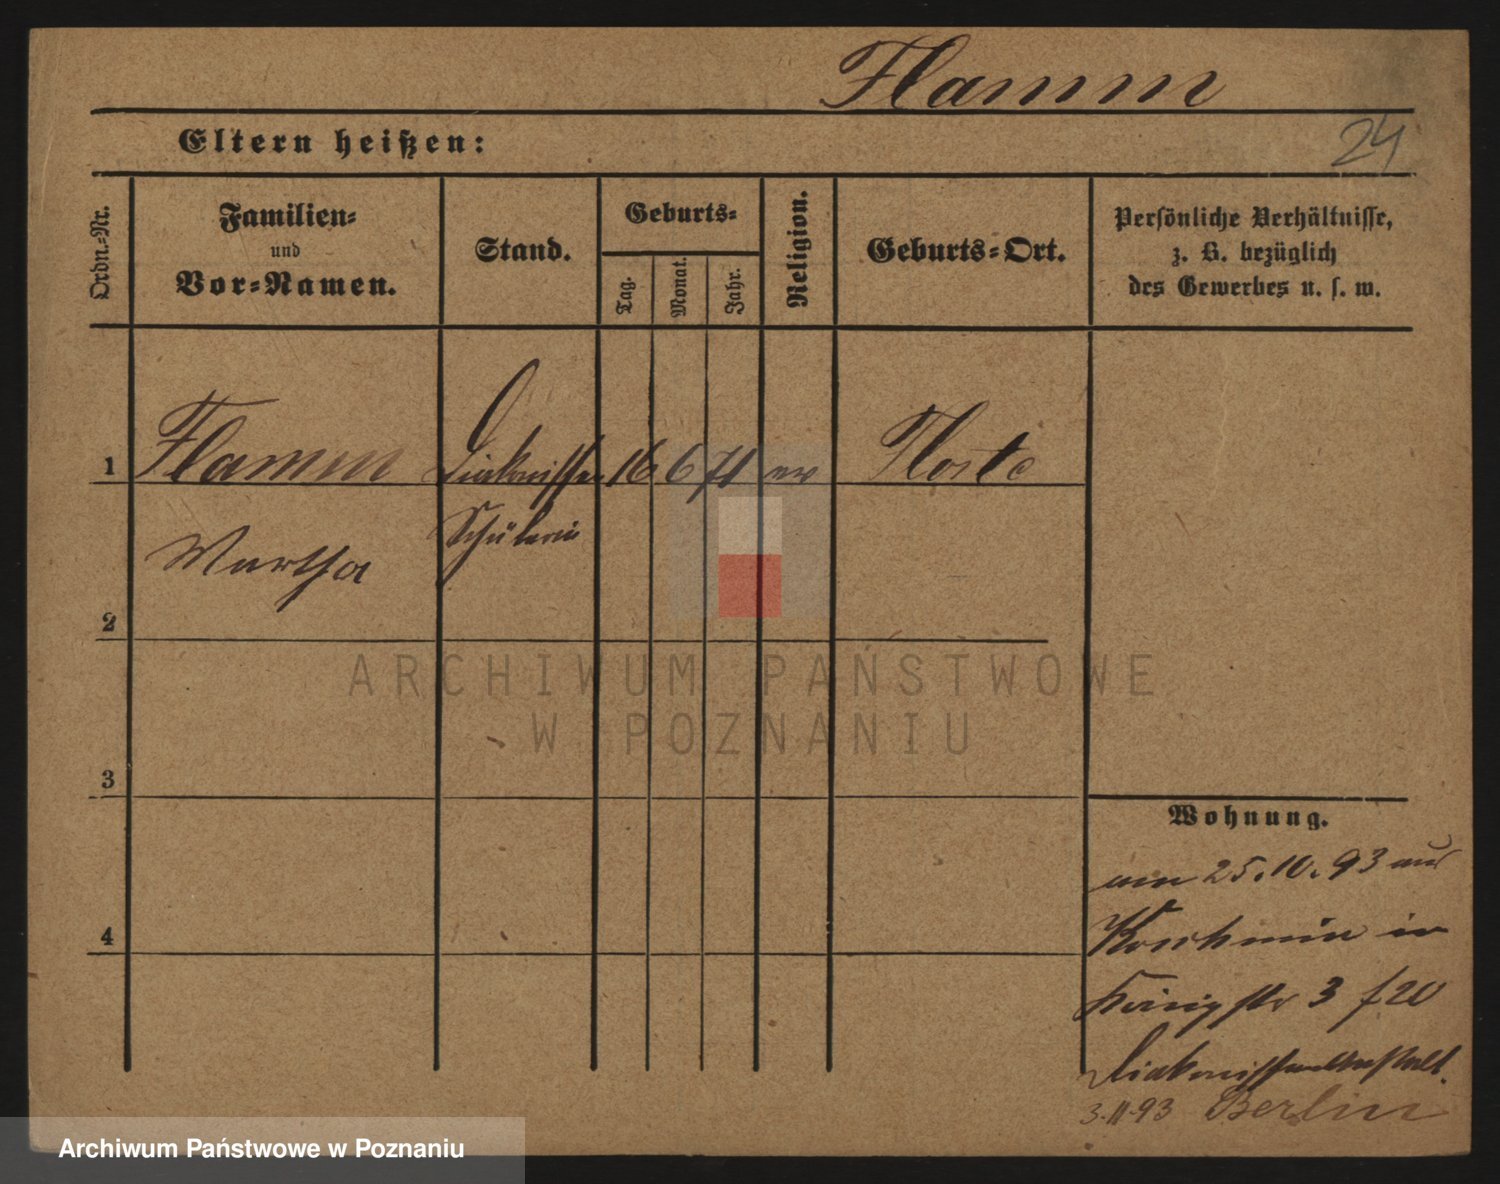 Flamm
24
Eltern heißen:
Ordn.-Nr.
Familien-
und
Vor-Namen.
Stand.
Geburts-
Tag.
Monat.
Jahr.
Religion.
Geburts-Ort.
Persönliche Verhältnisse,
z. B. bezüglich
des Gewerbes u. s. w.
1 Flamm Diakonissen 16 6 71 ev
Schülerin
Martha
2
3
4
Wohnung.
am 25.10.93 aus
Koschmin in
Königstr 3 f 20
Diakonissenanstalt.
3.11.93 Berlin
ARCHIWUM PAŃSTWOWE
W POZNANIU
Archiwum Państwowe w Poznaniu